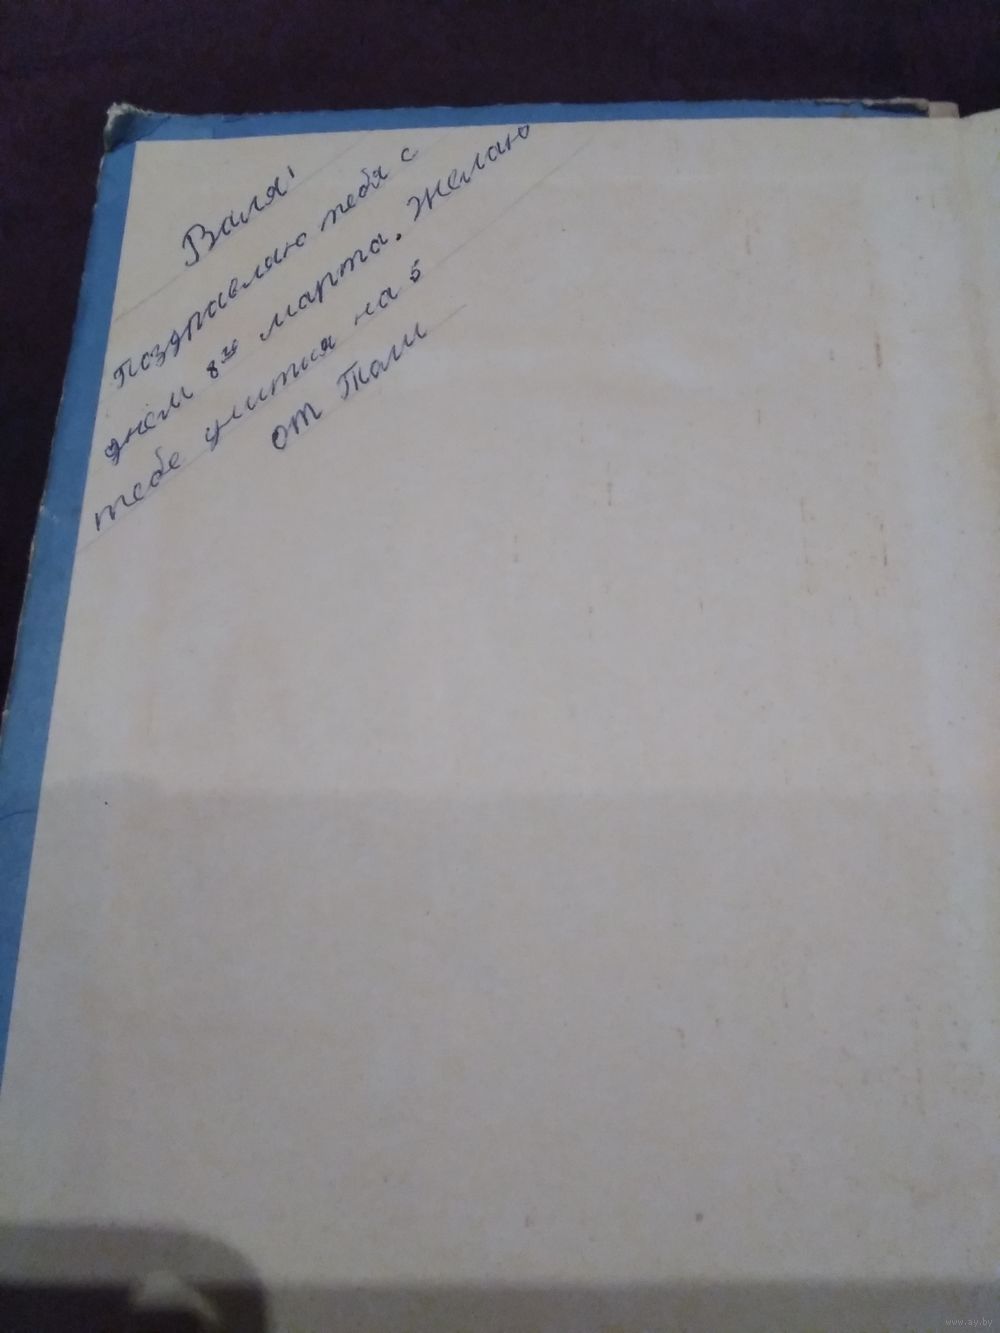 Валя!
поздравляю тебя с
днём 8ч марта. Желаю
тебе учится на 5
от Толи
www.ay.by